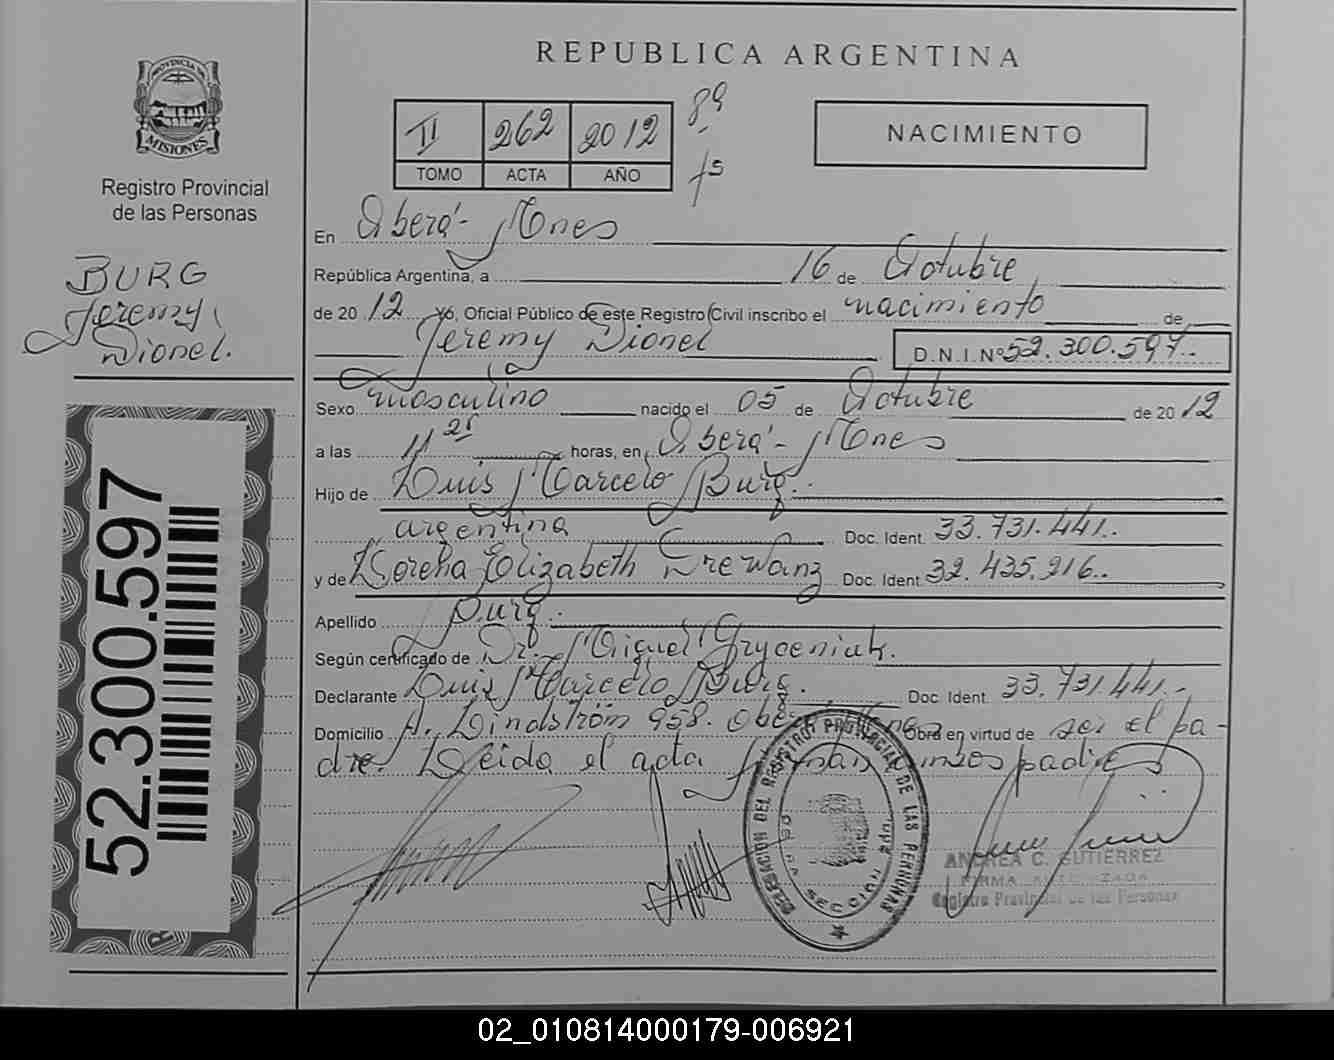 REPUBLICA ARGENTINA
PROVINCIA DE
MISIONES
Registro Provincial
de las Personas
II 262 2012
TOMO ACTA AÑO
89
fs
NACIMIENTO
BURG
Jeremy
Dionel.
52.300.597
En Oberá - Mnes
República Argentina, a 16 de Octubre
de 2012 Yo, Oficial Público de este Registro Civil inscribo el nacimiento de
Jeremy Dionel D.N.I.Nº 52.300.597.-
Sexo masculino nacido el 05 de Octubre de 2012
a las 11 25 horas, en Oberá - Mnes
Hijo de Luis Marcelo Burg.
argentina Doc. Ident. 33.731.441..
y de Lorena Elizabeth Drewanz Doc. Ident. 32.435.216..
Apellido Burg.
Según certificado de Dr. Miguel Gryceniuk.
Declarante Luis Marcelo Burg. Doc. Ident. 33.731.441.-
Domicilio A. Lindström 958. Oberá Mnes Obra en virtud de ser el pa-
dre. Leída el acta firman ambos padres
DELEGACION DEL REGISTRO PROVINCIAL DE LAS PERSONAS
SECCION
ANDREA C. GUTIERREZ
FIRMA AUTORIZADA
Registro Provincial de las Personas
02_010814000179-006921